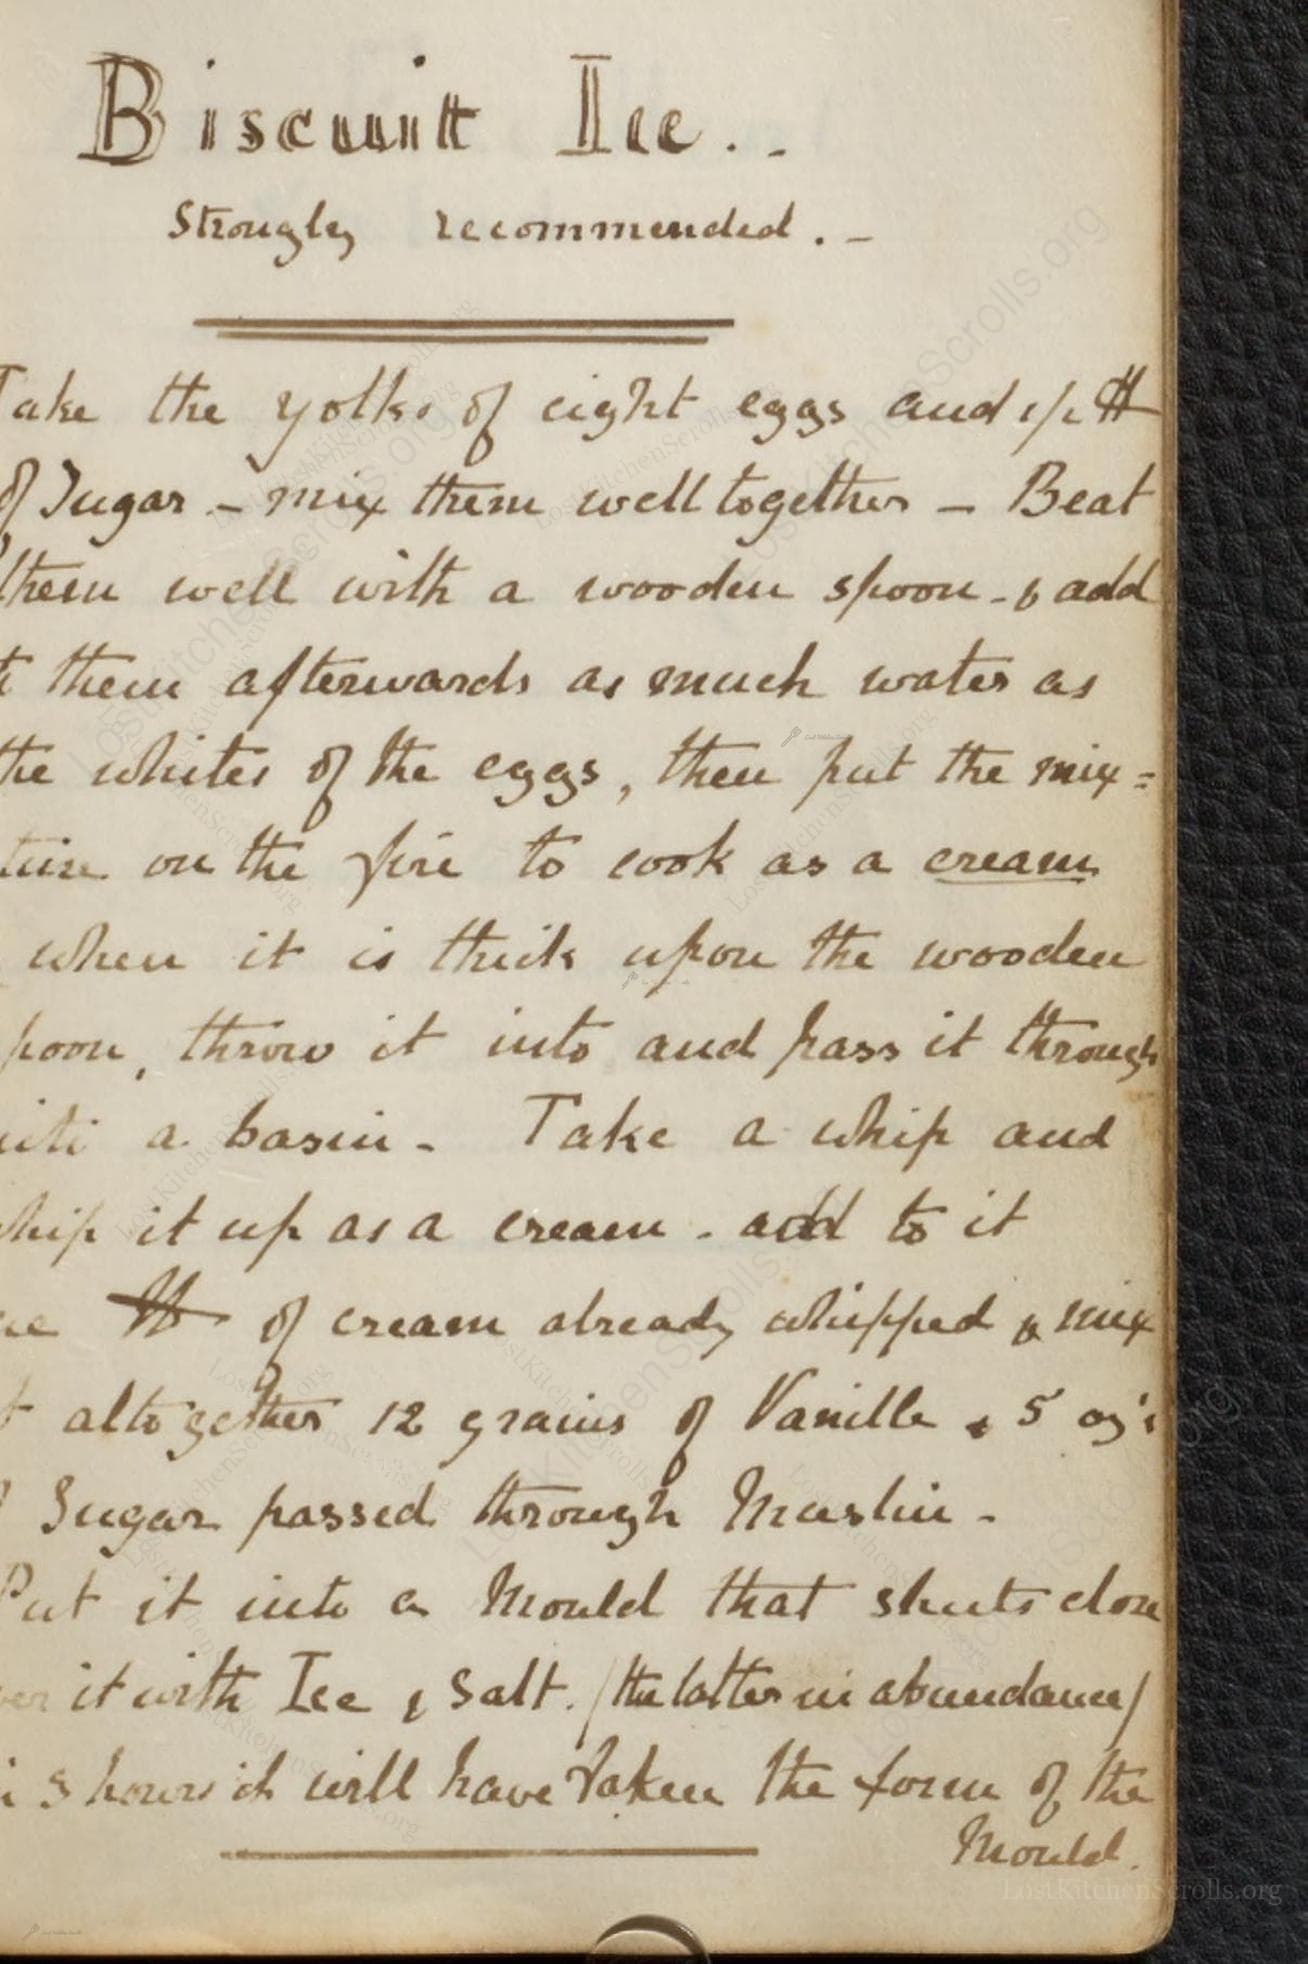 Biscuitt Ice. -
Strongly recommended. -
Take the yolks of eight eggs and 1/2 ℔
of Sugar - mix them well together - Beat
them well with a wooden spoon - & add
to them afterwards as much water as
the whites of the eggs, then put the mix=
ture on the fire to cook as a cream
when it is thick upon the wooden
poon, throw it into and pass it through
into a basin - Take a whip and
whip it up as a cream - add to it
℔ of cream already whipped & mix
altogether 12 grains of Vanille & 5 oz's
Sugar passed through Muslin -
Put it into a Mould that shuts close
it with Ice & Salt. (the latter in abundance)
hours it will have taken the form of the
Mould.
LostKitchenScrolls.org